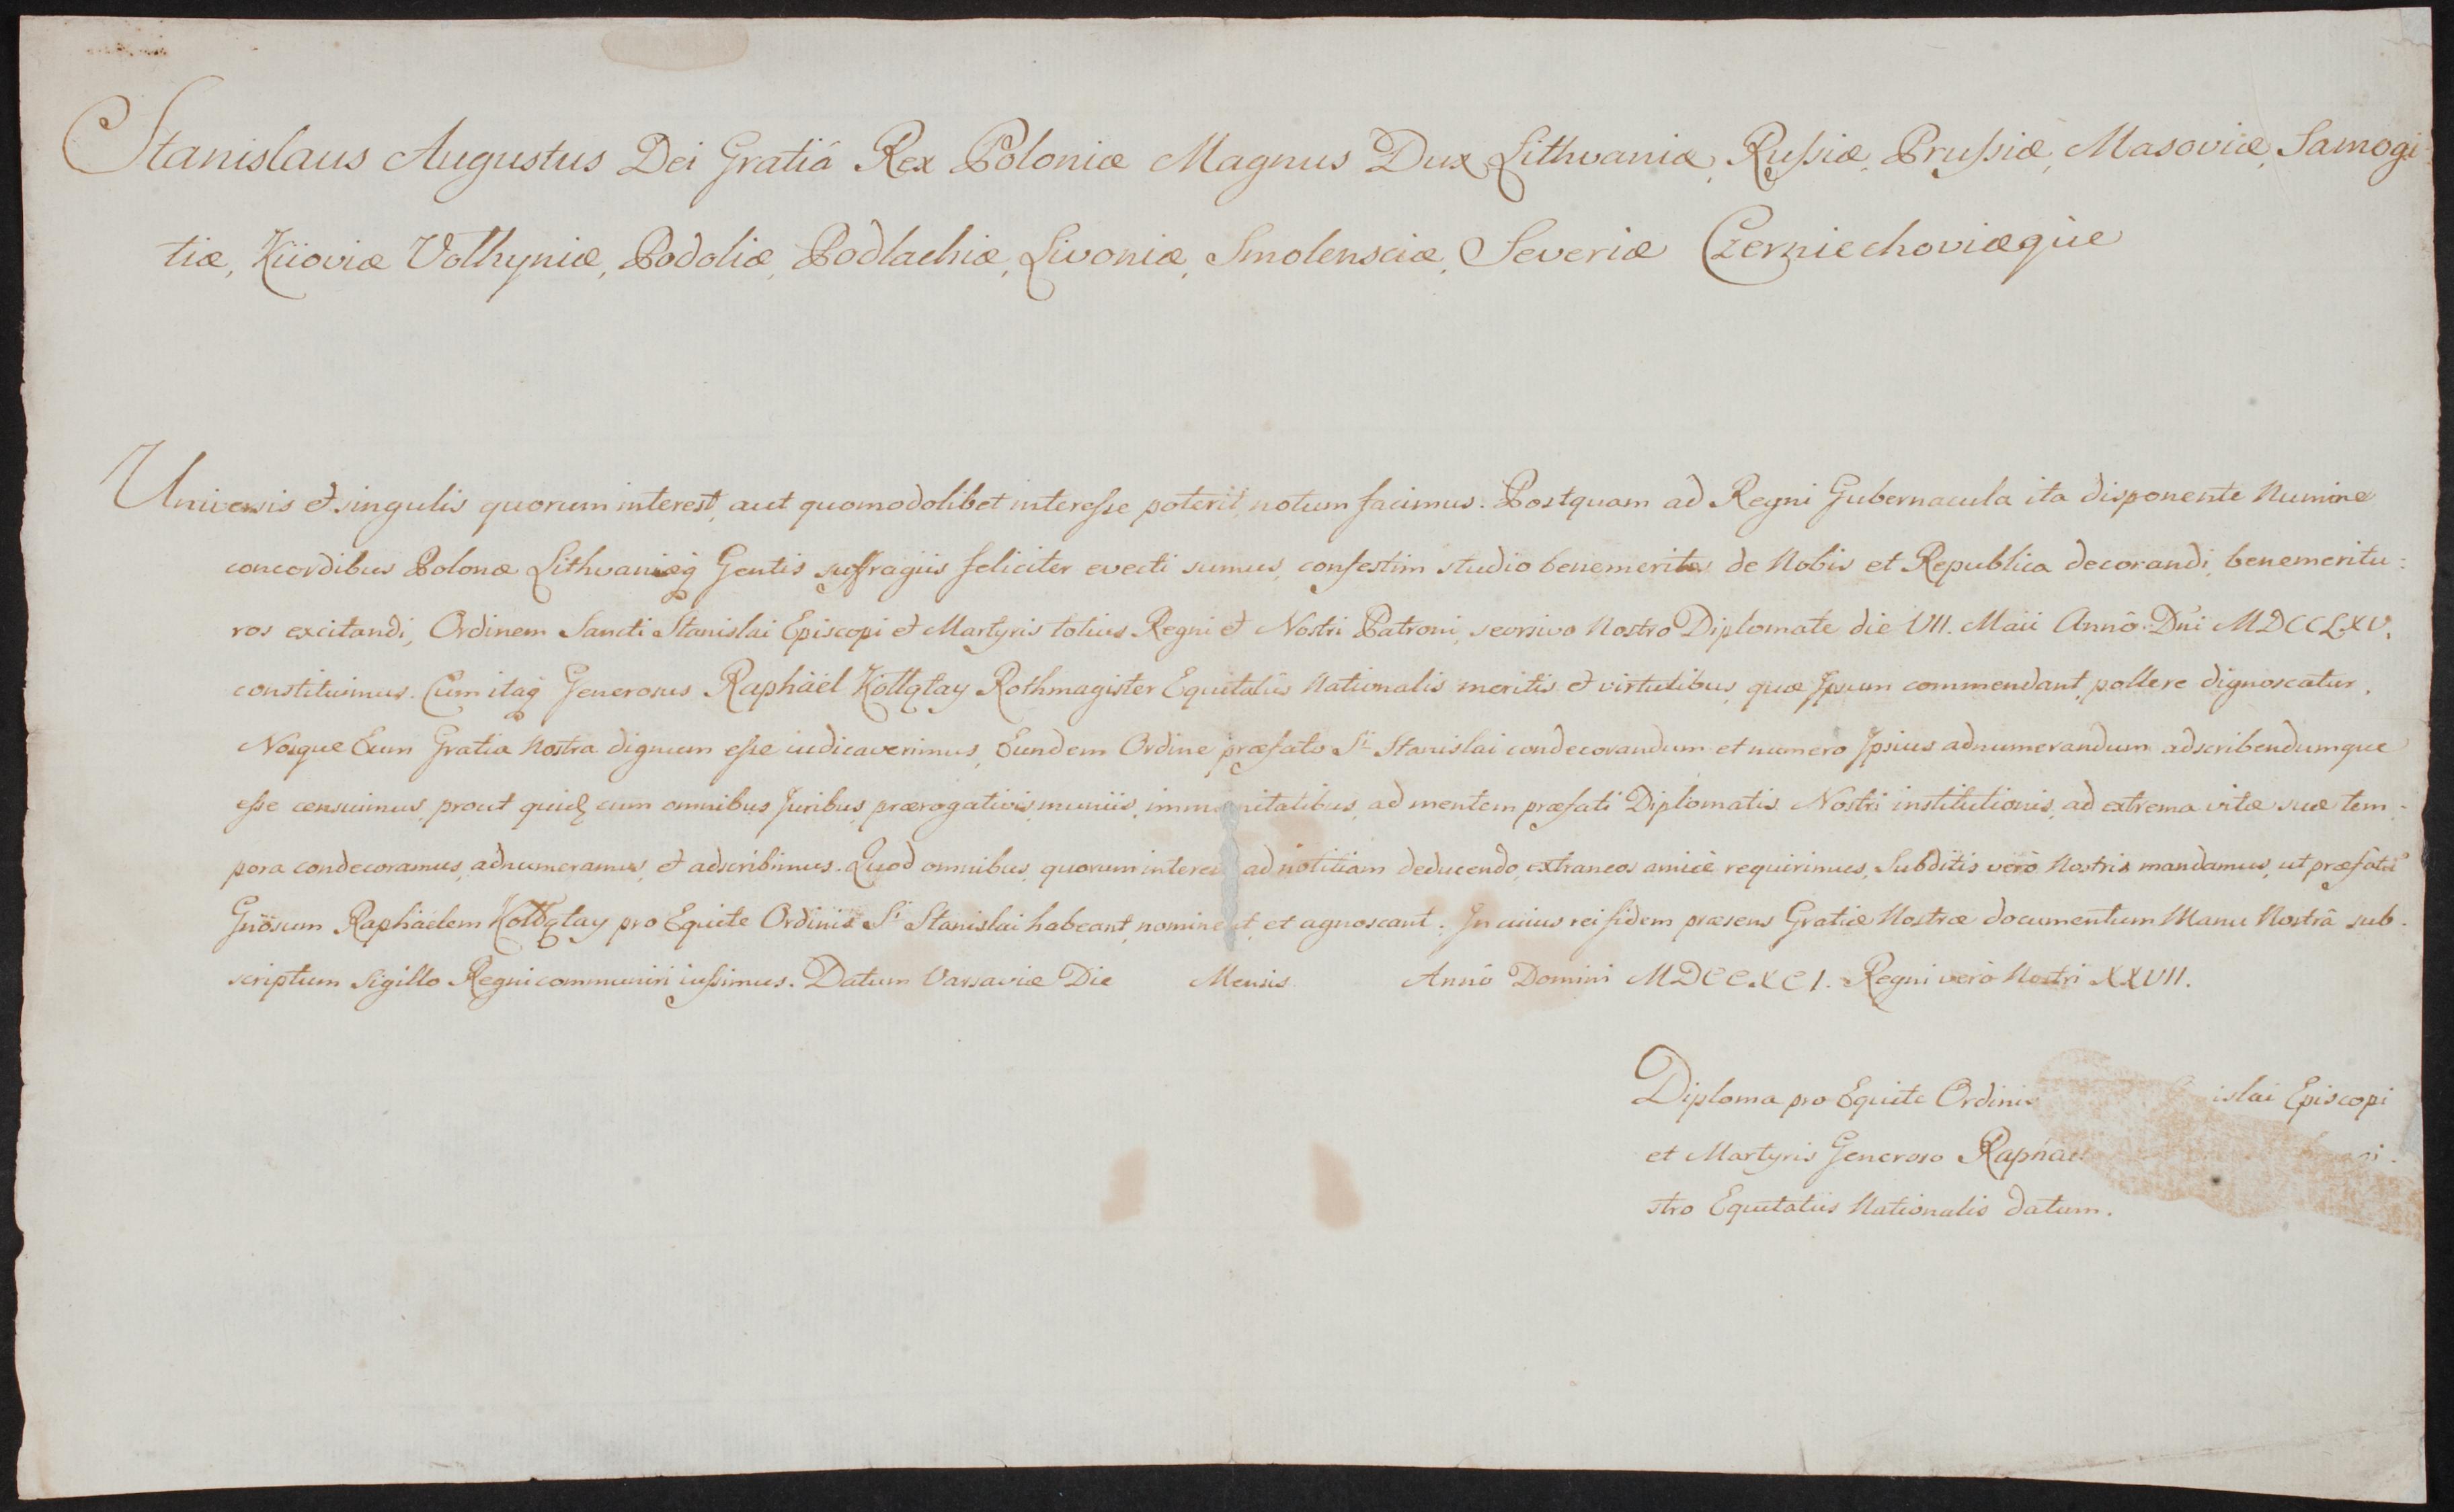 Stanislaus Augustus Dei Gratiâ Rex Poloniæ Magnus Dux Lithvaniæ, Rußiæ, Prußiæ, Masoviæ, Samogi-
tiæ, Kiioviæ Volhyniæ, Podoliæ, Podlachiæ, Livoniæ, Smolensciæ, Severiæ Czerniechoviæque
Universis et singulis quorum interest, aut quomodolibet intereße poterit, notum facimus. Postquam ad Regni Gubernacula ita disponente Numine
concordibus Polonæ Lithvaniæq Gentis suffragiis feliciter evecti sumus, confestim studio benemeritos de Nobis et Republica decorandi, benemeritu:
ros excitandi, Ordinem Sancti Stanislai Episcopi et Martyris totius Regni et Nostri Patroni, seorsivo Nostro Diplomate die VII. Maii Annô Dni MDCCLXV.
constituimus. Cum itaq Generosus Raphäel Kołłątay Rothmagister Equitatûs Nationalis meritis et virtutibus, quæ Ipsum commendant, pollere dignoscatur,
Nosque Eum Gratia Nostra dignum eße iudicaverimus, Eundem Ordine præfato Sti Stanislai condecorandum et numero Ipsius adnumerandum adscribendumque
eße censuimus, prout quidem cum omnibus Juribus, prærogativis, muniis, immunitatibus, ad mentem præfati Diplomatis Nostri institutionis, ad extrema vitæ suæ tem-
pora condecoramus, adnumeramus, et adscribimus. Quod omnibus, quorum interes ad notitiam deducendo, extraneos amicè requirimus, Subditis verò Nostris mandamus, ut præfatū
Gnösum Raphäelem Kołłątay pro Equite Ordinis Sti Stanislai habeant, nominent, et agnoscant. In cuius rei fidem præsens Gratiæ Nostræ documentum Manu Nostrâ sub-
scriptum Sigillo Regni communiri iußimus. Datum Varsaviæ Die Mensis Annô Domini MDCCXCI. Regni verò Nostri XXVII.
Diploma pro Equite Ordinis islai Episcopi
et Martyris Generoso Raphae
stro Equitatûs Nationalis datum.